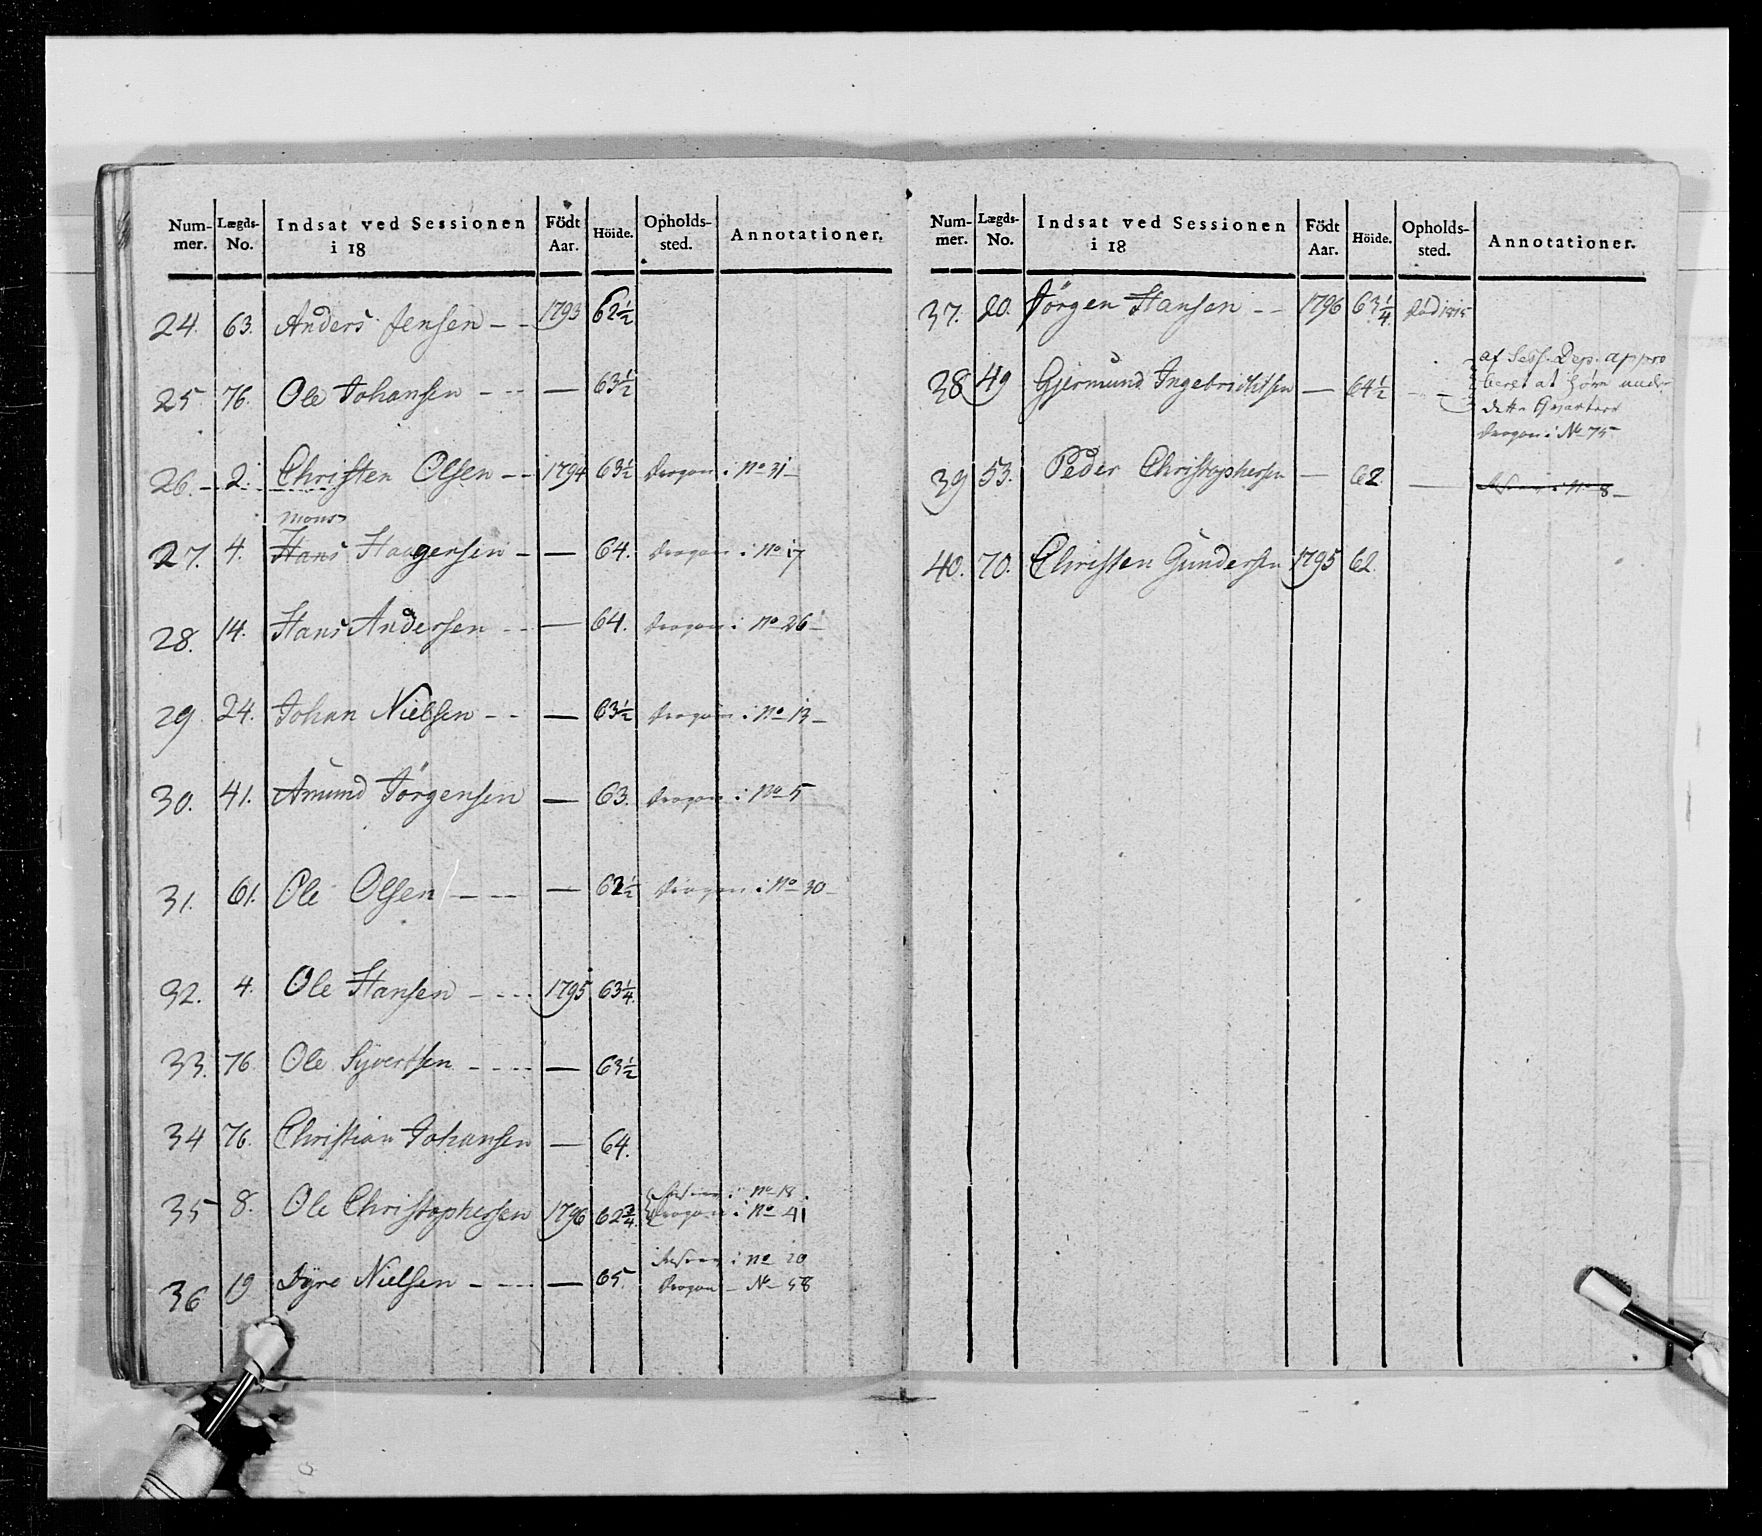 Num-mer. Lægds-No. Indsat ved Sessionen i 18 Födt Aar. Höide. Opholds-sted. Annotationer.
24. 63. Anders Jensen – – 1793 62½
25 76. Ole Johansen – – – — 63½
26. – 2. Christen Olsen – – 1794 63½ Dragon i No 31 –
Mons
27. 4. Hans Haagensen – — 64. Dragon i No 17
28. 14. Hans Andersen – – — 64. Dragon i No 26 –
29 24. Johan Nielsen – – — 63½ Dragon i No 13 –
30. 41. Amund Jörgensen — 63. Dragon i No 5
31. 61. Ole Olsen – – — 62½ Dragon i No 30 –
32. 4. Ole Hansen – – – 1795 63¼
33. 76 Ole Syvertsen – – – – — 63½
34 76. Christian Johansen — 64.
35 8. Ole Christophersen 1796 62¾ Reserv i No 18
Dragon i No 41
36 19 Dyre Nielsen – – – – — 65 Reserv i No 20
Dragon – No 58
Num-mer. Lægds-No. Indsat ved Sessionen i 18 Födt Aar. Höide. Opholds-sted. Annotationer.
37. 20. Jörgen Hansen – – 1796 63¼ Död 1815
38 49 Gjermund Ingebrichtsen — 64½ – – af Sess. Dep. appro
beret at höre under
dette Qvarteer
Dragon i No 75
39 53. Peder Christophersen — 62 — Reserv i No 8 –
40. 70. Christen Gundersen 1795 62